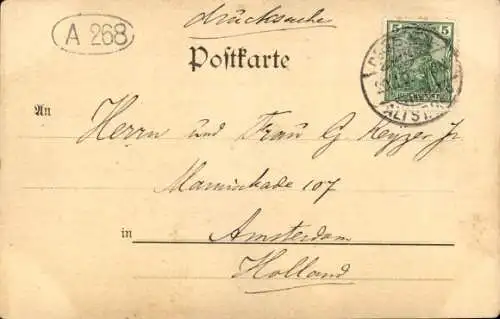 Drucksache
A 268
Postkarte
5 5
ALTST.
An
Herrn und Frau G. Keyzer Jr
107
in Amsterdam
Holland